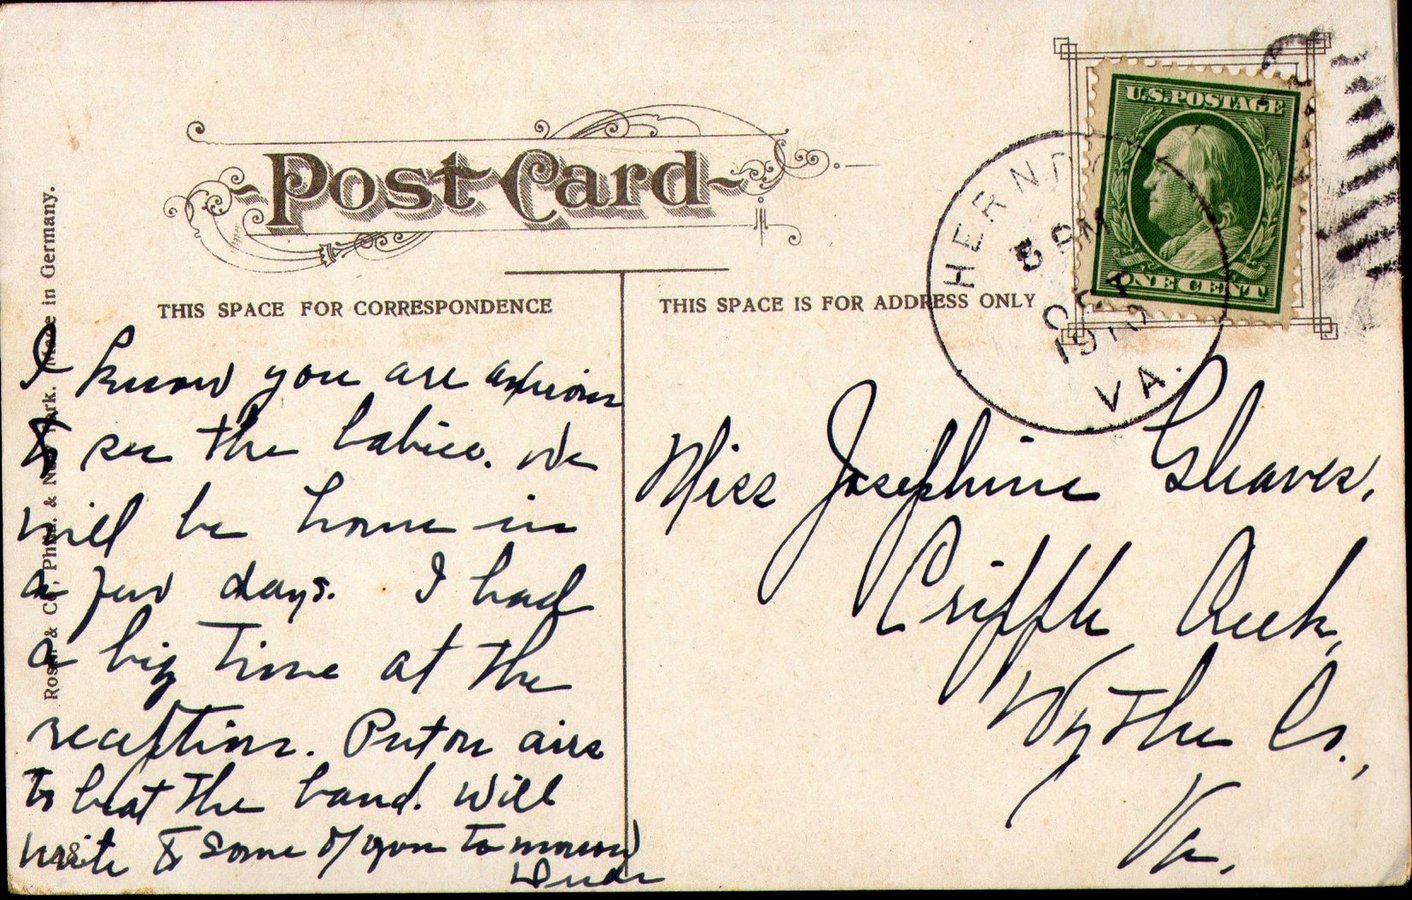 Post Card
U.S. POSTAGE
ONE CENT
HERNDO
PM
OCT
191
VA.
THIS SPACE FOR CORRESPONDENCE
THIS SPACE IS FOR ADDRESS ONLY
Made in Germany.
I know you are anxious
to see the babies. We
will be home in
a few days. I had
a big time at the
reception. Put on airs
to beat the band. Will
write to some of you tomorrow
Miss Josephine Gleaves,
Cripple Creek,
Wythe Co.,
Va.